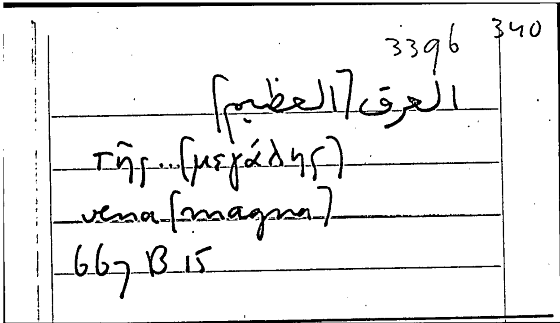 3396 340
العرق [العظيم]
τῆς.. [μεγάλης]
vena [magna]
667 B 15